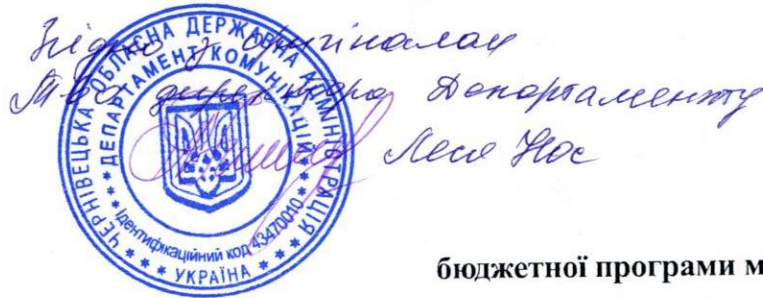 Згідно з оригіналом
директора Департаменту
Леся Нос
ЧЕРНІВЕЦЬКА ОБЛАСНА ДЕРЖАВНА АДМІНІСТРАЦІЯ
* * * УКРАЇНА * * *
ДЕПАРТАМЕНТ КОМУНІКАЦІЙ
* Ідентифікаційний код 43470010 *
бюджетної програми м